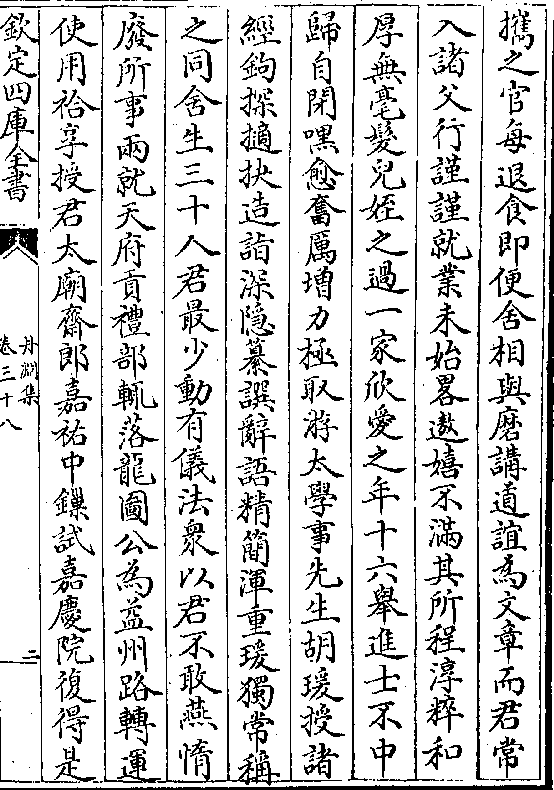 攜之官每退食即便舍相與磨講道誼為文章而君常
入諸父行謹謹就業未始畧遨嬉不滿其所程淳粹和
厚無毫髮兒姪之過一家欣愛之年十六舉進士不中
歸自閉嘿愈奮厲增力極取游太學事先生胡瑗授諸
經鉤探擿抉造詣深隱纂譔辭語精簡渾重瑗獨常稱
之同舍生三十人君最少動有儀法衆以君不敢燕惰
廢所事兩就天府貢禮部輒落龍圖公為益州路轉運
使用祫享授君太廟齋郎嘉祐中鏁試嘉慶院復得是
欽定四庫全書
丹淵集
卷三十八
二